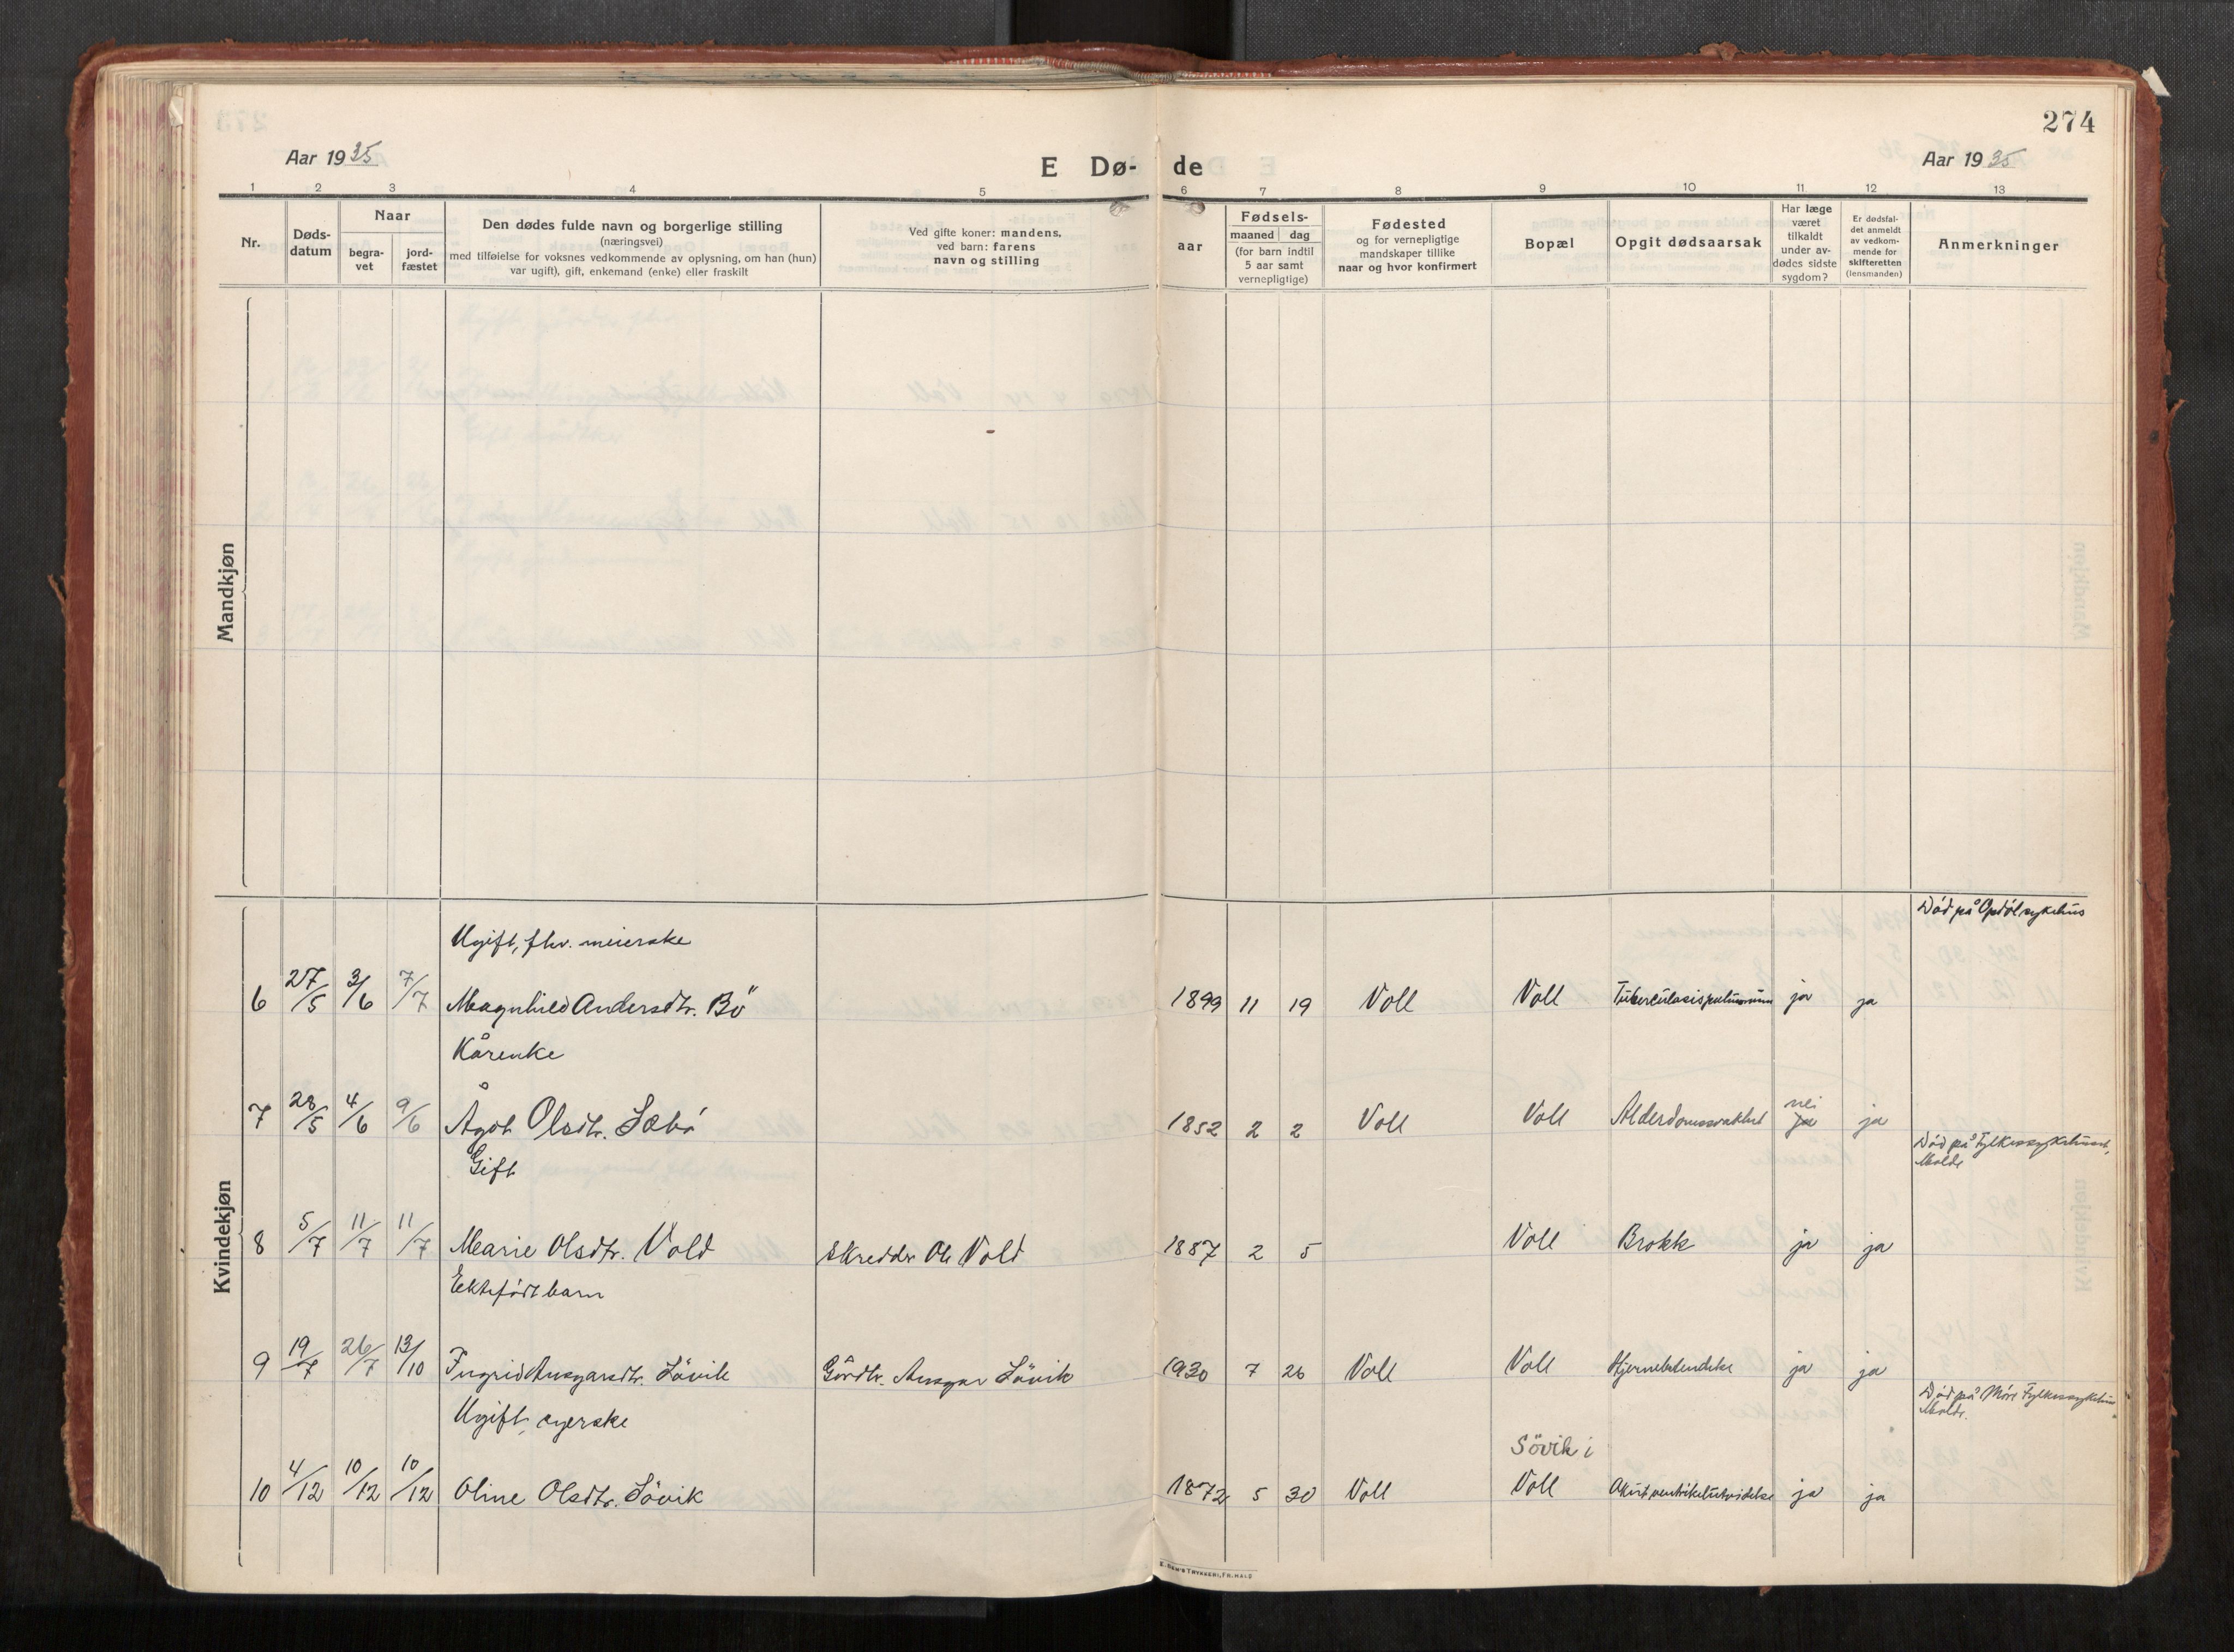 274
Aar 1935
E Dø- de
Aar 1935
1 2 3 4 5 6 7 8 9 10 11 12 13
Nr.
Døds-
datum
Naar
begra-
vet
jord-
fæstet
Den dødes fulde navn og borgerlige stilling
(næringsvei)
med tilføielse for voksnes vedkommende av oplysning, om han (hun)
var ugift), gift, enkemand (enke) eller fraskilt
Ved gifte koner: mandens,
ved barn: farens
navn og stilling
aar
Fødsels-
maaned dag
(for barn indtil
5 aar samt
vernepligtige)
Fødested
og for vernepligtige
mandskaper tillike
naar og hvor konfirmert
Bopæl
Opgit dødsaarsak
Har læge
været
tilkaldt
under av-
dødes sidste
sygdom?
Er dødsfal-
det anmeldt
av vedkom-
mende for
skifteretten
(lensmanden)
Anmerkninger
Mandkjøn
Kvindekjøn
Död på Opdöl sykehus
Ugift, fhv. meierske
6 27/5 3/6 7/7 Magnhild Andersdtr. Bö 1899 11 19 Voll Voll Tuberculosis pulmonum ja ja
Kårenke
7 28/5 4/6 9/6 Ågot Olsdtr. Sæbö 1852 2 2 Voll Voll Alderdomssvakhet nei ja ja
Död på Fylkessykehuset,
Molde
Gift
8 5/7 11/7 11/7 Marie Olsdtr. Vold Skredder Ole Vold 1887 2 5 Voll Brokk ja ja
Ektefödt barn
9 19/7 26/7 13/10 Ingrid Ansgarsdtr. Lövik Gårdbr. Ansgar Lövik 1930 7 26 Voll Voll Hjernebetendelse ja ja
Död på Möre Fylkessykehus
Molde.
Ugift,
Sövik i
10 4/12 10/12 10/12 Oline Olsdtr. Sövik 1872 5 30 Voll Voll Akut ventrikelutvidelse ja ja
E. SEM'S TRYKKERI, FR.HALD